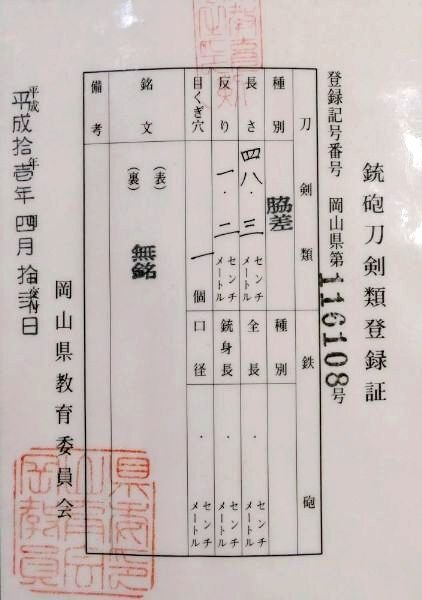 銃砲刀剣類登録証
登録記号番号 岡山県第116108号
刀剣類
鉄砲
種別 脇差
種別
長さ 四八・三 センチメートル
全長 ・ センチメートル
反り 一・二 センチメートル
銃身長 ・ センチメートル
目くぎ穴 一個
口径 ・ センチメートル
銘文
(表) 無銘
(裏)
備考
平成拾壱年四月拾弐日
岡山県教育委員会